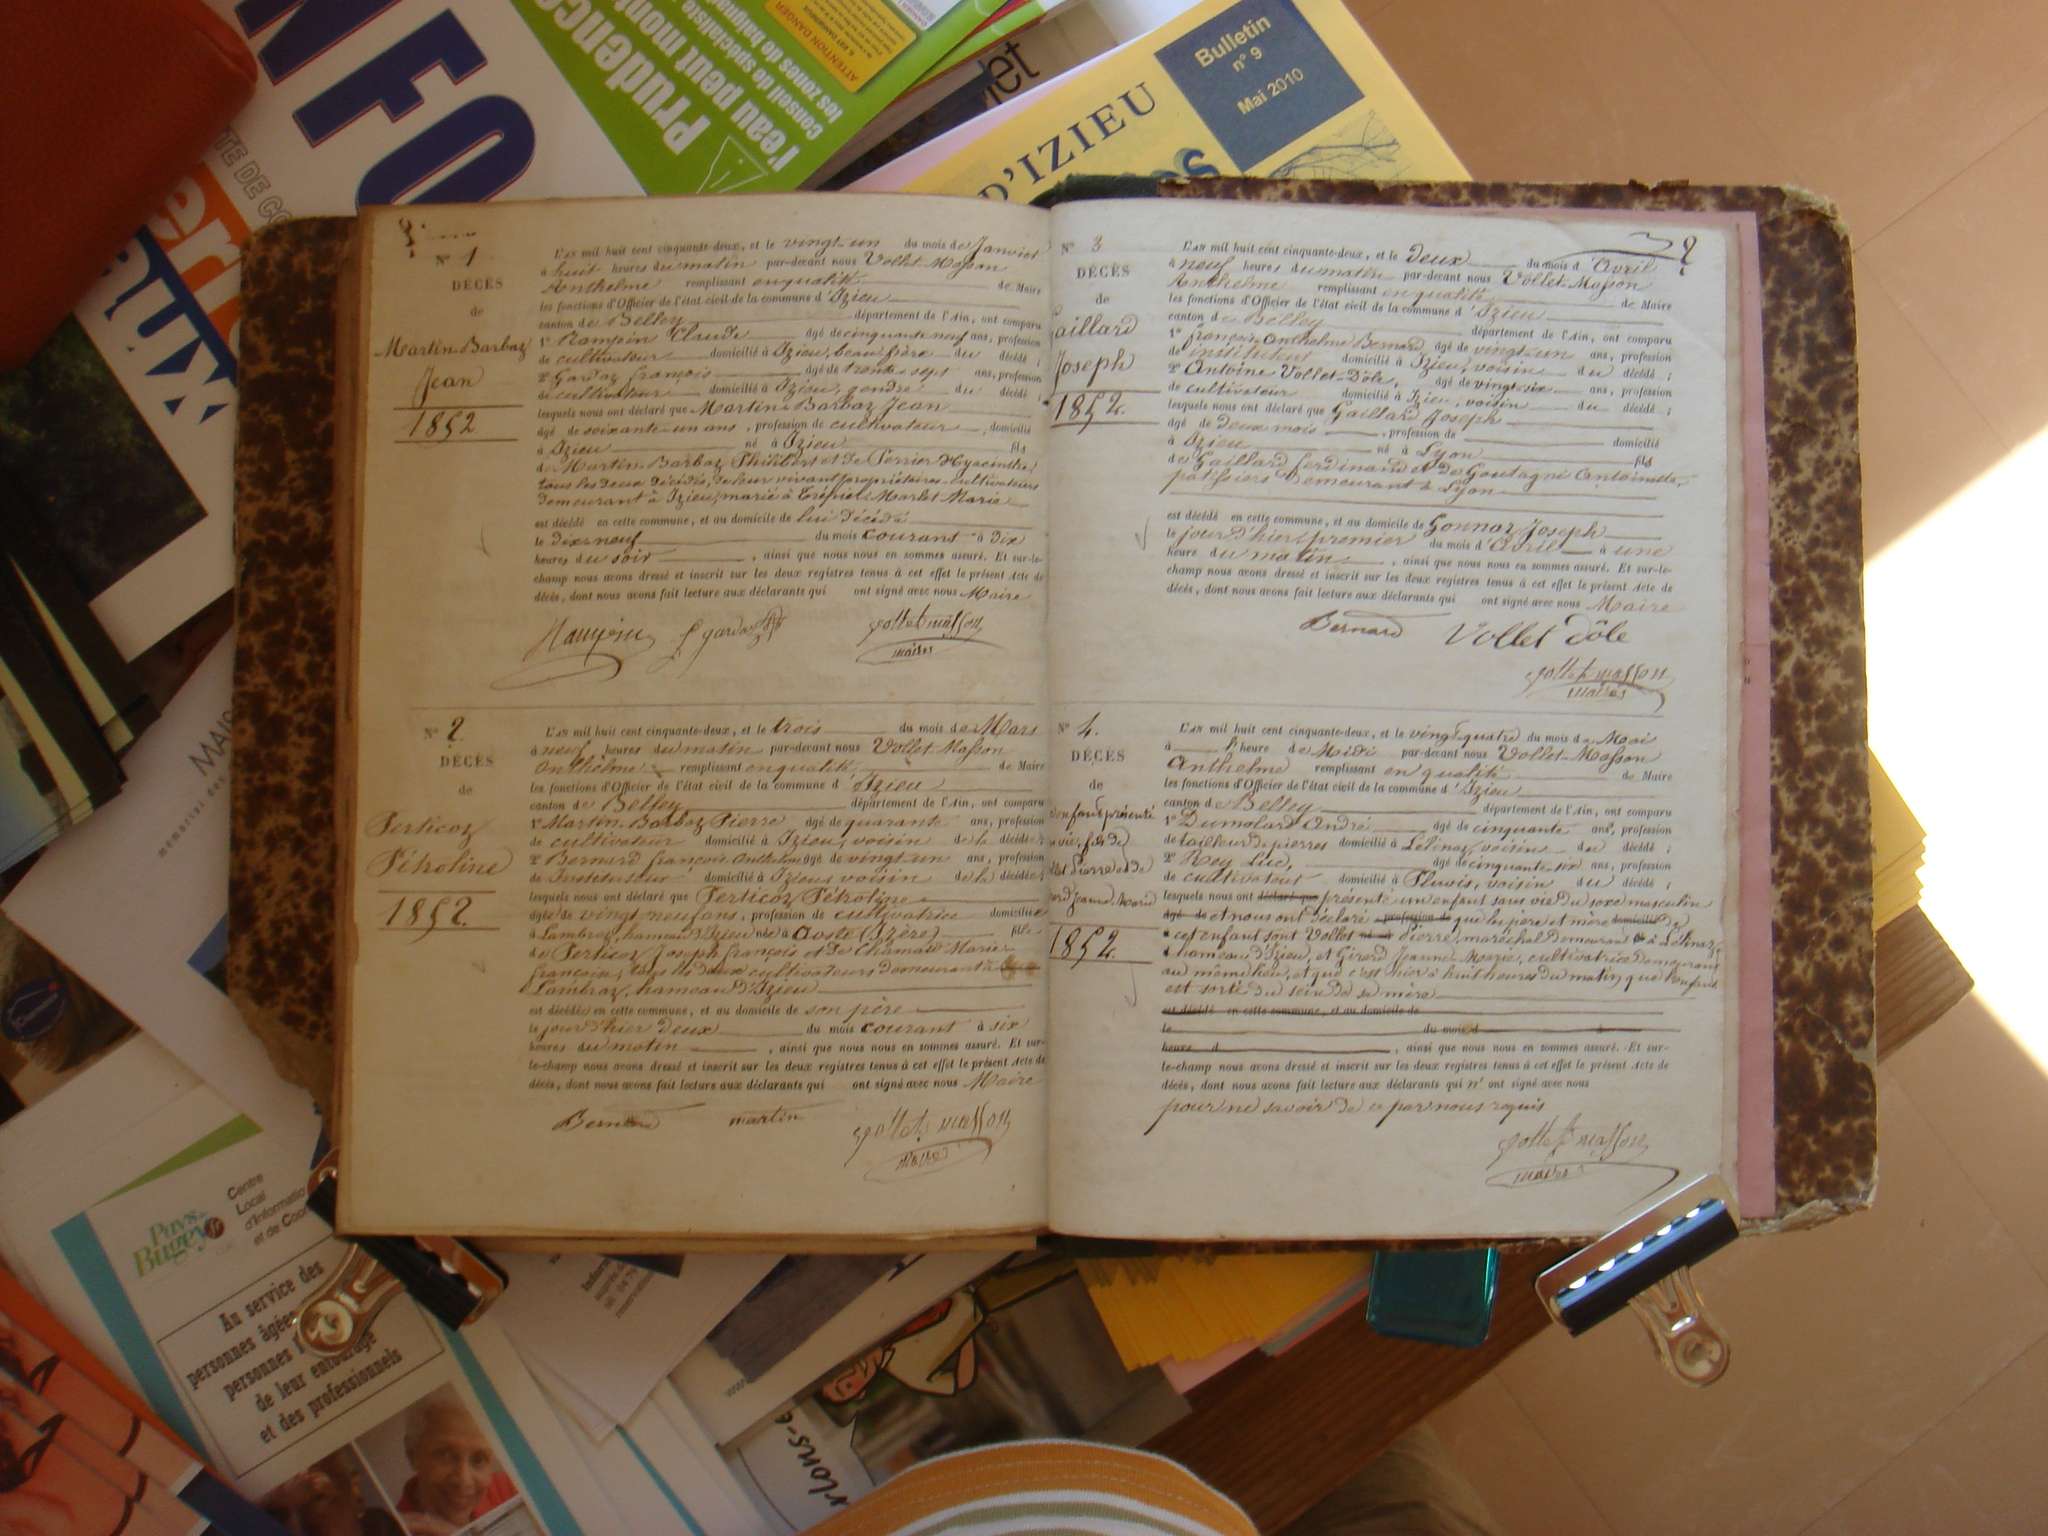 NFO
Prudence
l'eau peut mont
Conseil de
les zones de
ATTENTION DANGER
D'IZIEU
Bulletin
n° 9
Mai 2010
N° 1
DÉCÈS
de
Martin-Barbaz
Jean
1852
L'AN mil huit cent cinquante-deux, et le vingt-un du mois de Janvier
à huit heures du matin par-devant nous Vollet-Masson
Anthelme remplissant en qualité de Maire
les fonctions d'Officier de l'état civil de la commune d'Izieu
canton de Belley département de l'Ain, ont comparu
1° Rampin Claude âgé de cinquante neuf ans, profession
de cultivateur domicilié à Izieu, beau frère du décédé ;
2° Gardaz françois âgé de trente-sept ans, profession
de cultivateur domicilié à Izieu, gendre du décédé ;
lesquels nous ont déclaré que Martin-Barbaz Jean
âgé de soixante-un ans, profession de cultivateur, domicilié
à Izieu né à Izieu fils
de Martin-Barbaz Philibert et de Perrier Hyacinthe,
tous les deux décédés, de leur vivant propriétaires-cultivateurs
demeurant à Izieu, marié à Marlet Marie
est décédé en cette commune, et au domicile de lui décédé
le dix-neuf du mois courant à dix
heures du soir, ainsi que nous nous en sommes assuré. Et sur-le-
champ nous avons dressé et inscrit sur les deux registres tenus à cet effet le présent Acte de
décès, dont nous avons fait lecture aux déclarants qui ont signé avec nous Maire
f gardaz
vollet masson
maire
N° 2.
DÉCÈS
de
Perticoz
Pétroline
1852.
L'AN mil huit cent cinquante-deux, et le trois du mois de Mars
à neuf heures du matin par-devant nous Vollet-Masson
Anthelme remplissant en qualité de Maire
les fonctions d'Officier de l'état civil de la commune d'Izieu
canton de Belley département de l'Ain, ont comparu
1° Martin-Barbaz Pierre âgé de quarante ans, profession
de cultivateur domicilié à Izieu, voisin de la décédée ;
2° Bernard françois Anthelme âgé de vingt-un ans, profession
de Instituteur domicilié à Izieu, voisin de la décédée ;
lesquels nous ont déclaré que Perticoz Pétroline
âgée de vingt-neuf ans, profession de cultivatrice domiciliée
à Lambraz, hameau d'Izieu née à Aoste (Isère) fille
de Perticoz Joseph françois et de Chamaud Marie
françoise, tous les deux cultivateurs demeurant à
Lambraz, hameau d'Izieu
est décédée en cette commune, et au domicile de son père
le jour d'hier deux du mois courant à six
heures du matin, ainsi que nous nous en sommes assuré. Et sur-
le-champ nous avons dressé et inscrit sur les deux registres tenus à cet effet le présent Acte de
décès, dont nous avons fait lecture aux déclarants qui ont signé avec nous Maire
Bernard martin vollet masson
maire
N° 3
DÉCÈS
de
Gaillard
Joseph
1852.
L'AN mil huit cent cinquante-deux, et le Deux du mois d'Avril
à neuf heures du matin par-devant nous Vollet-Masson
Anthelme remplissant en qualité de Maire
les fonctions d'Officier de l'état civil de la commune d'Izieu
canton de Belley département de l'Ain, ont comparu
1° françois Anthelme Bernard âgé de vingt-un ans, profession
de instituteur domicilié à Izieu, voisin du décédé ;
2° Antoine Vollet-Dôle, âgé de vingt-six ans, profession
de cultivateur domicilié à Izieu, voisin du décédé ;
lesquels nous ont déclaré que Gaillard Joseph
âgé de deux mois, profession de domicilié
à Izieu né à Lyon fils
de Gaillard ferdinand et de Goutagni Antoinette,
patissiers demeurant à Lyon
est décédé en cette commune, et au domicile de Gonnaz Joseph
le jour d'hier premier du mois d'Avril à une
heure du matin, ainsi que nous nous en sommes assuré. Et sur-le-
champ nous avons dressé et inscrit sur les deux registres tenus à cet effet le présent Acte de
décès, dont nous avons fait lecture aux déclarants qui ont signé avec nous Maire
Bernard Vollet dôle
vollet masson
maire
N° 4.
DÉCÈS
de
enfant présenté
sans vie, fils de
Vollet Pierre et de
Girerd Jeanne-Marie
1852.
L'AN mil huit cent cinquante-deux, et le vingt-quatre du mois de Mai
à heure de Midi par-devant nous Vollet-Masson
Anthelme remplissant en qualité de Maire
les fonctions d'Officier de l'état civil de la commune d'Izieu
canton de Belley département de l'Ain, ont comparu
1° Dumolard André âgé de cinquante ans, profession
de tailleur de pierres domicilié à Lélinaz, voisin du décédé ;
2° Rey Luc, âgé de cinquante-six ans, profession
de cultivateur domicilié à Pluvis, voisin du décédé ;
lesquels nous ont déclaré que présenté un enfant sans vie du sexe masculin
âgé de et nous ont déclaré profession de que les père et mère domicilié de
cet enfant sont Vollet né à Pierre, maréchal demeurant à Lélinaz,
hameau d'Izieu, et Girerd Jeanne Marie, cultivatrice demeurant
au même lieu, et que c'est hier à huit heures du matin, que l'enfant
est sorti du sein de sa mère
est décédé en cette commune, et au domicile de
le du mois d à
heure d, ainsi que nous nous en sommes assuré. Et sur-
le-champ nous avons dressé et inscrit sur les deux registres tenus à cet effet le présent Acte de
décès, dont nous avons fait lecture aux déclarants qui n'ont signé avec nous
pour ne savoir de ce par nous requis
vollet masson
maire
Pays du
Bugey
Centre
Local
d'Informatio
et de Coor
Au service des
personnes âgées
personnes
de leur entourage
et des professionnels